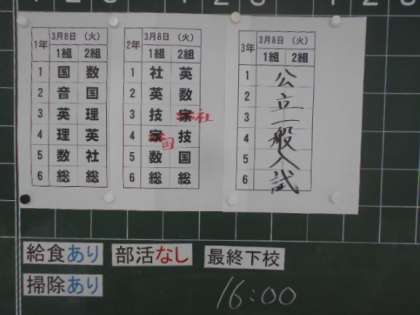 1年 3月8日（火）
1組 2組
1 国 数
2 音 国
3 英 理
4 理 英
5 数 社
6 総 総
2年 3月8日（火）
1組 2組
1 社 英
2 英 数
3 技 家 社
4 家 国 技
5 数 国
6 総 総
3年 3月8日（火）
1組 2組
1
2
3
4
5
6
公立一般入試
給食あり 部活なし 最終下校
掃除あり 16:00